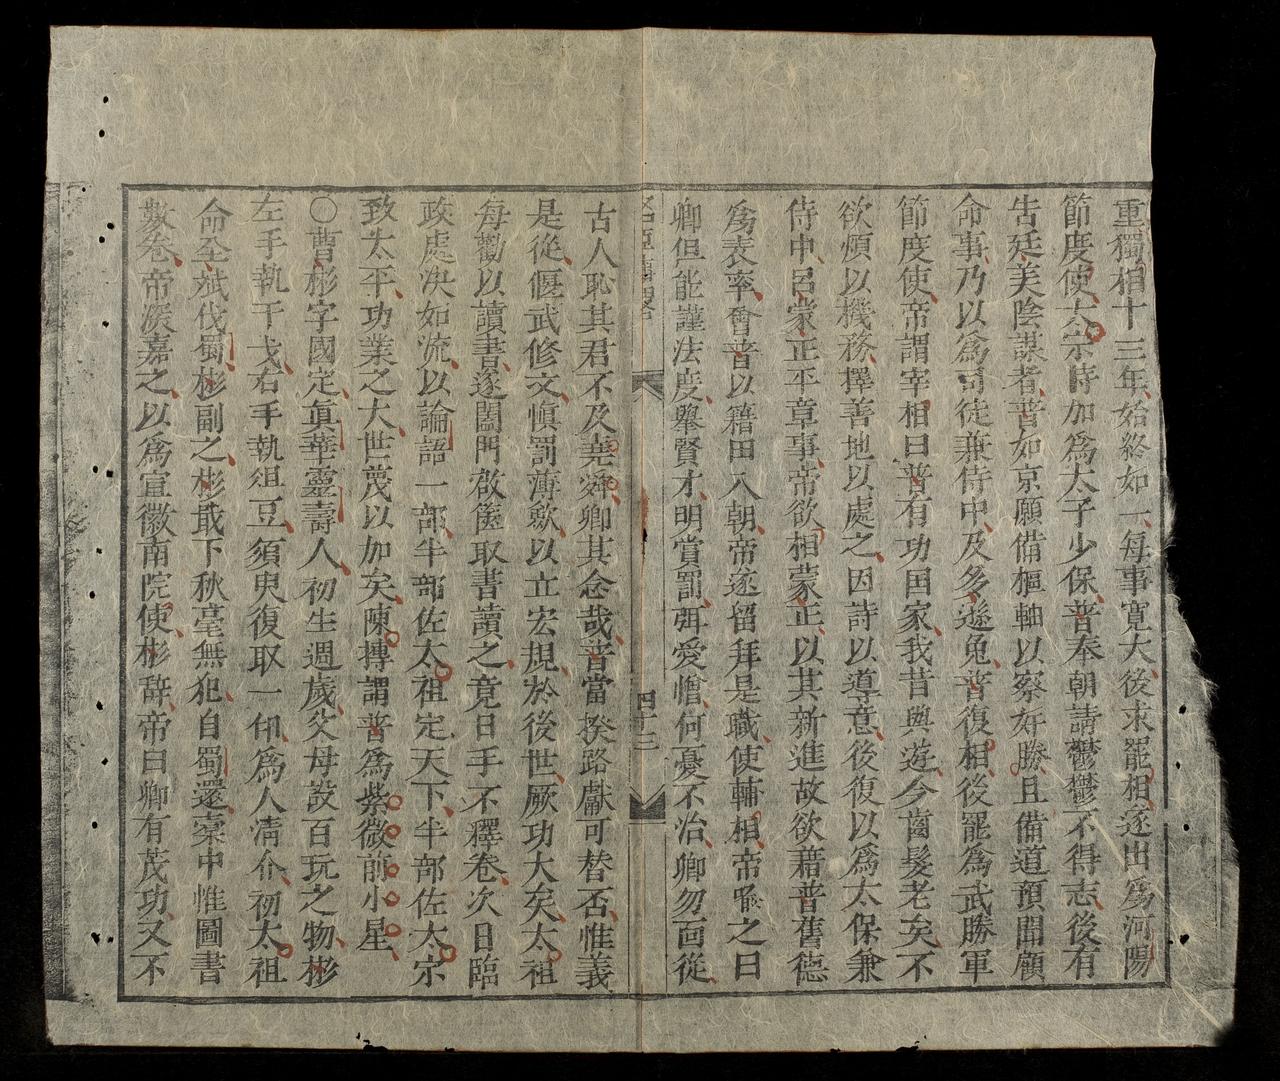 重獨相十三年始終如一每事寬大後求罷相遂出爲河陽
節度使太宗時加爲太子少保普奉朝請鬱鬱不得志後有
告廷美陰謀者普如京願備樞軸以察奸勝且備道預聞顧
命事乃以爲司徒兼侍中及多遜兔普復相後罷爲武勝軍
節度使帝謂宰相曰普有功国家我昔與遊今齒髮老矣不
欲煩以機務擇善地以處之因詩以導意後復以爲太保兼
侍中呂蒙正平章事帝欲相蒙正以其新進故欲藉普舊德
爲表率會普以籍田入朝帝遂留拜是職使輔相帝喚之曰
卿但能謹法度舉賢才明賞罰弭愛憎何憂不治卿勿面從
四十三
古人恥其君不及堯舜卿其念哉普當揆路獻可替否惟義
是從偃武修文愼罰薄歛以立宏規於後世厥功大矣太祖
每勸以讀書遂闔門啟篋取書讀之竟日手不釋卷次日臨
政處决如流以論語一部半部佐太祖定天下半部佐太宗
致太平功業之大世蔑以加矣陳摶謂普爲紫微前小星
〇曹彬字國定眞華靈壽人初生週歲父母設百玩之物彬
左手執干戈右手執俎豆須臾復取一印爲人清介初太祖
命全斌伐蜀彬副之彬戢下秋毫無犯自蜀還橐中惟圖書
數卷帝深嘉之以爲宣徽南院使彬辞帝曰卿有茂功又不